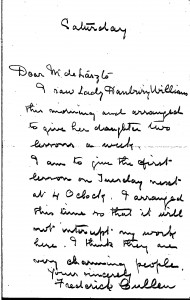 Saturday
Dear Mr de László
I saw Lady Hanbury Williams
this morning and arranged
to give her daughter two
lessons a week.
I am to give the first
lesson on Tuesday next
at 4 O'clock. I arranged
this time so that it will
not interrupt my work
here. I think they are
very charming people.
Yours sincerely
Frederick Cullen